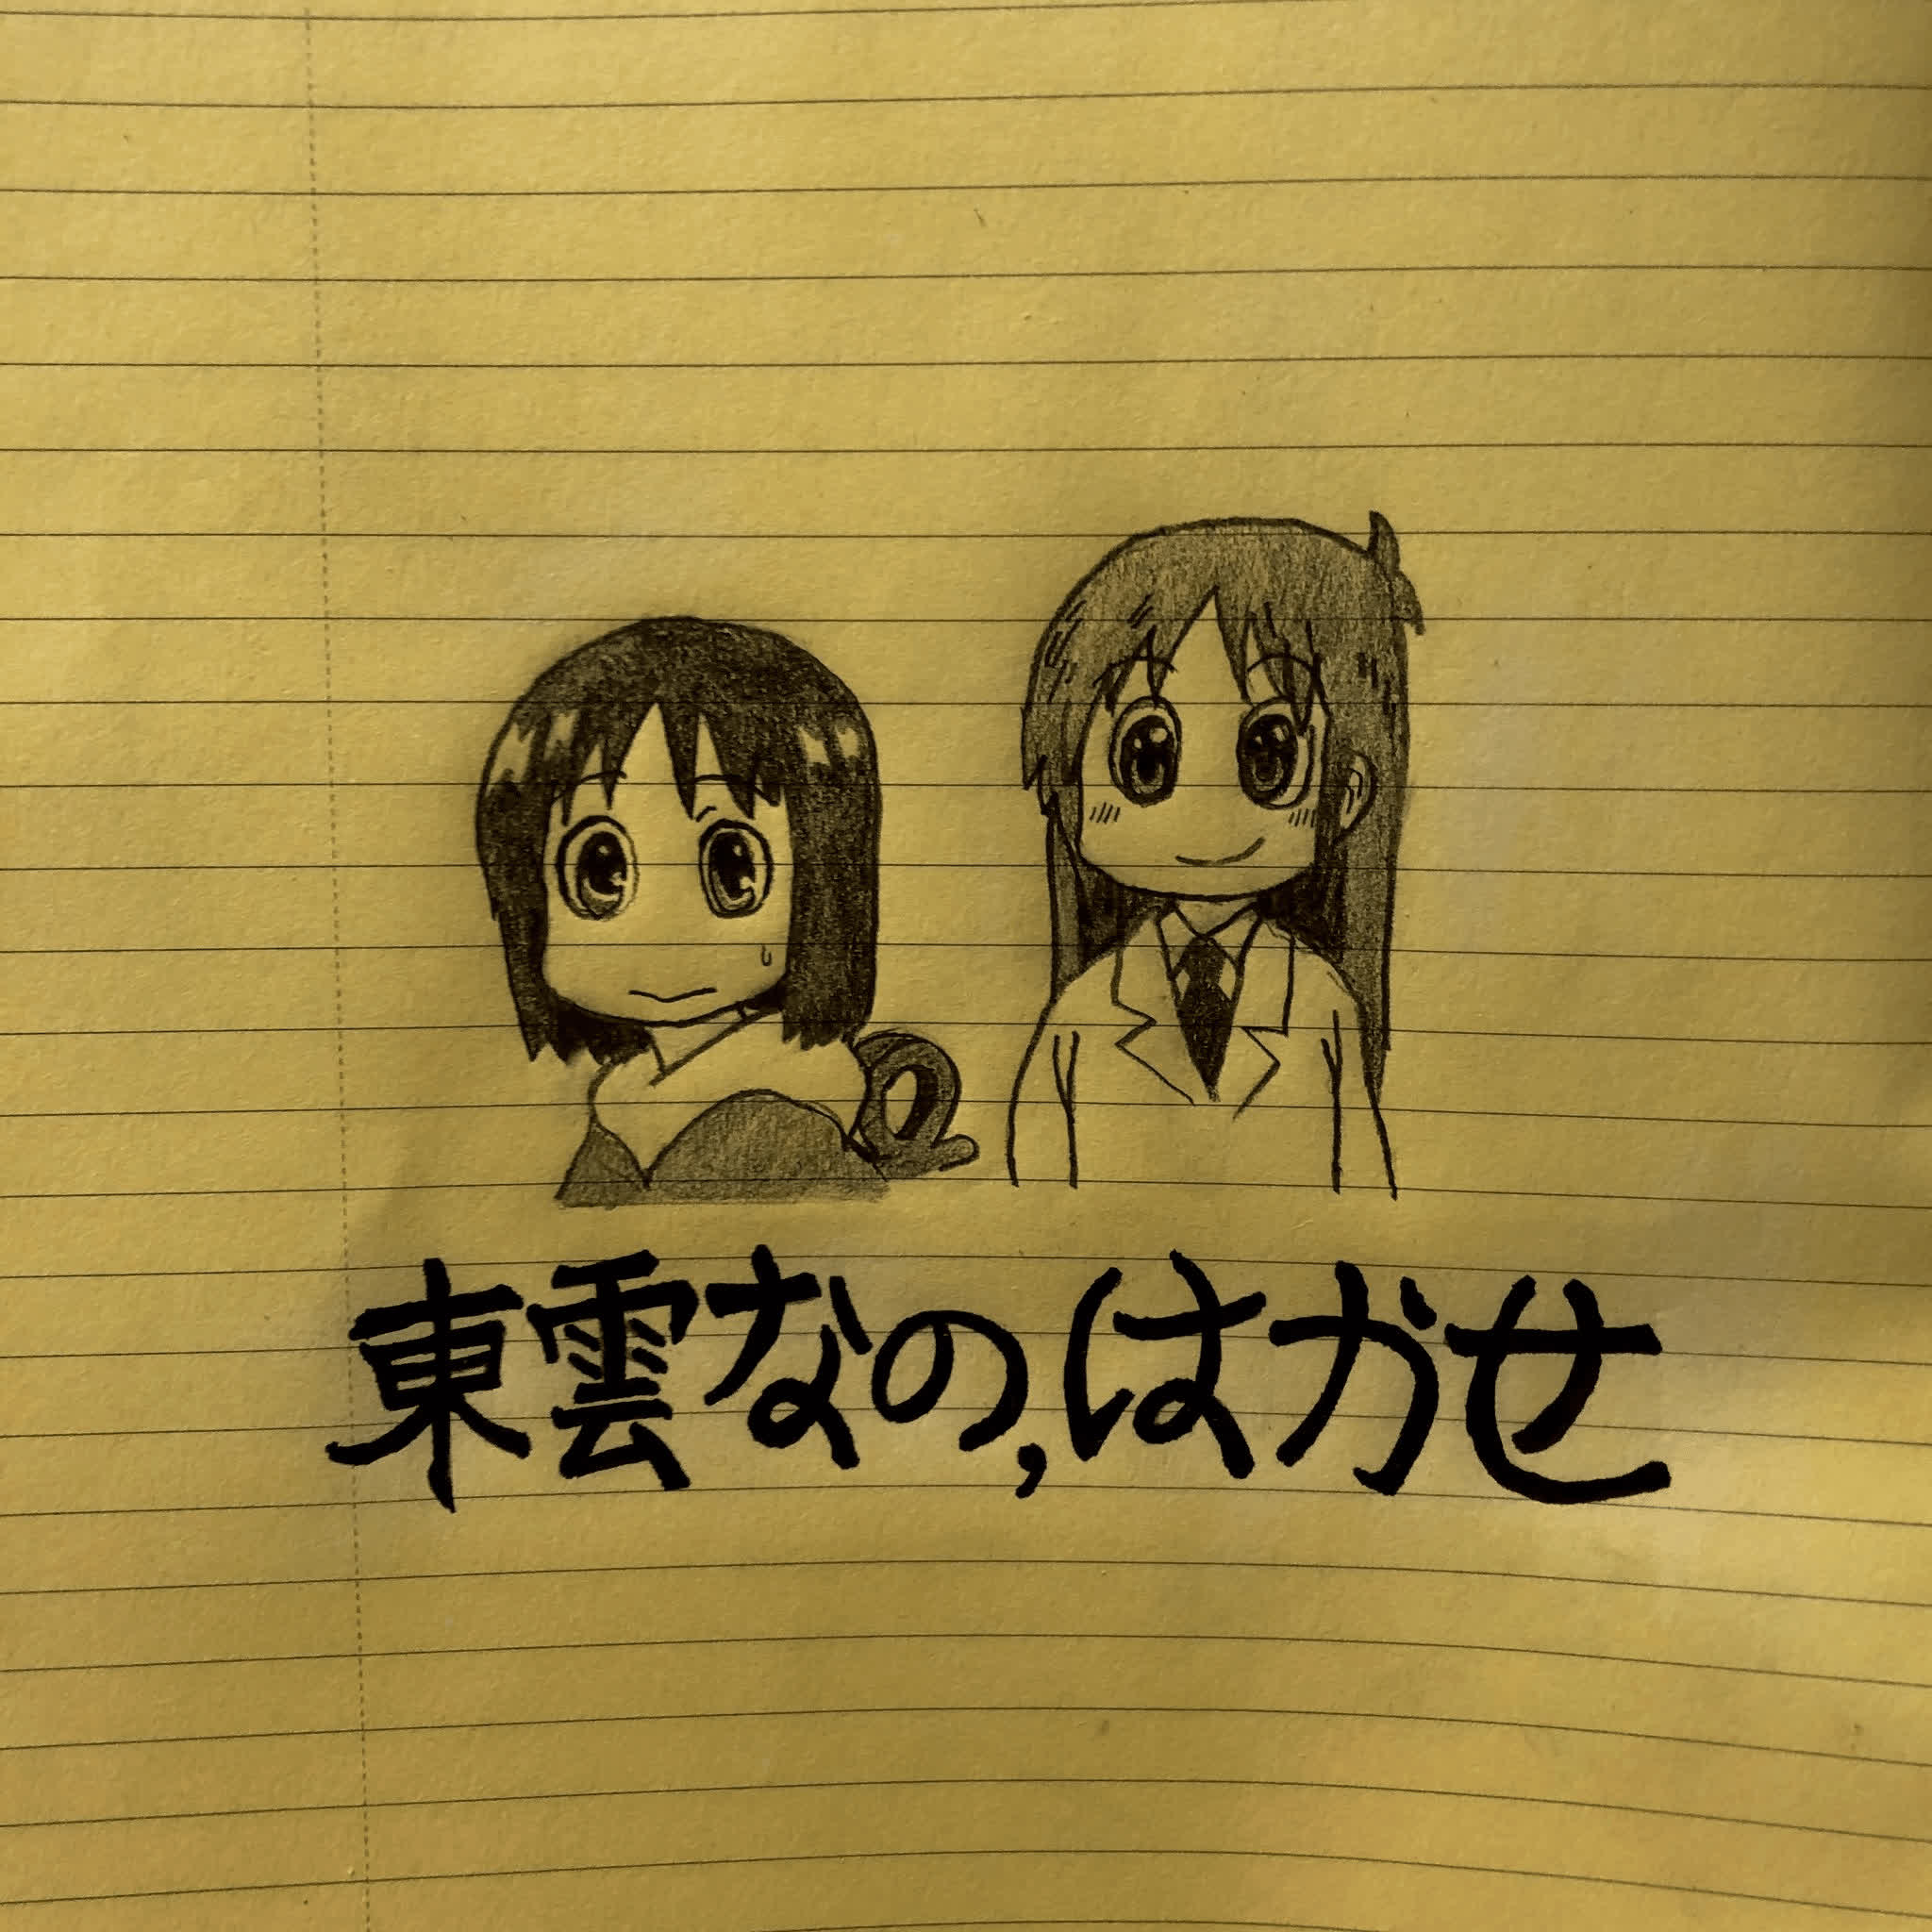 東雲なの,はかせ